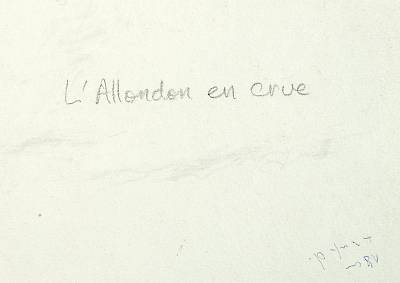 L'Allondon en crue